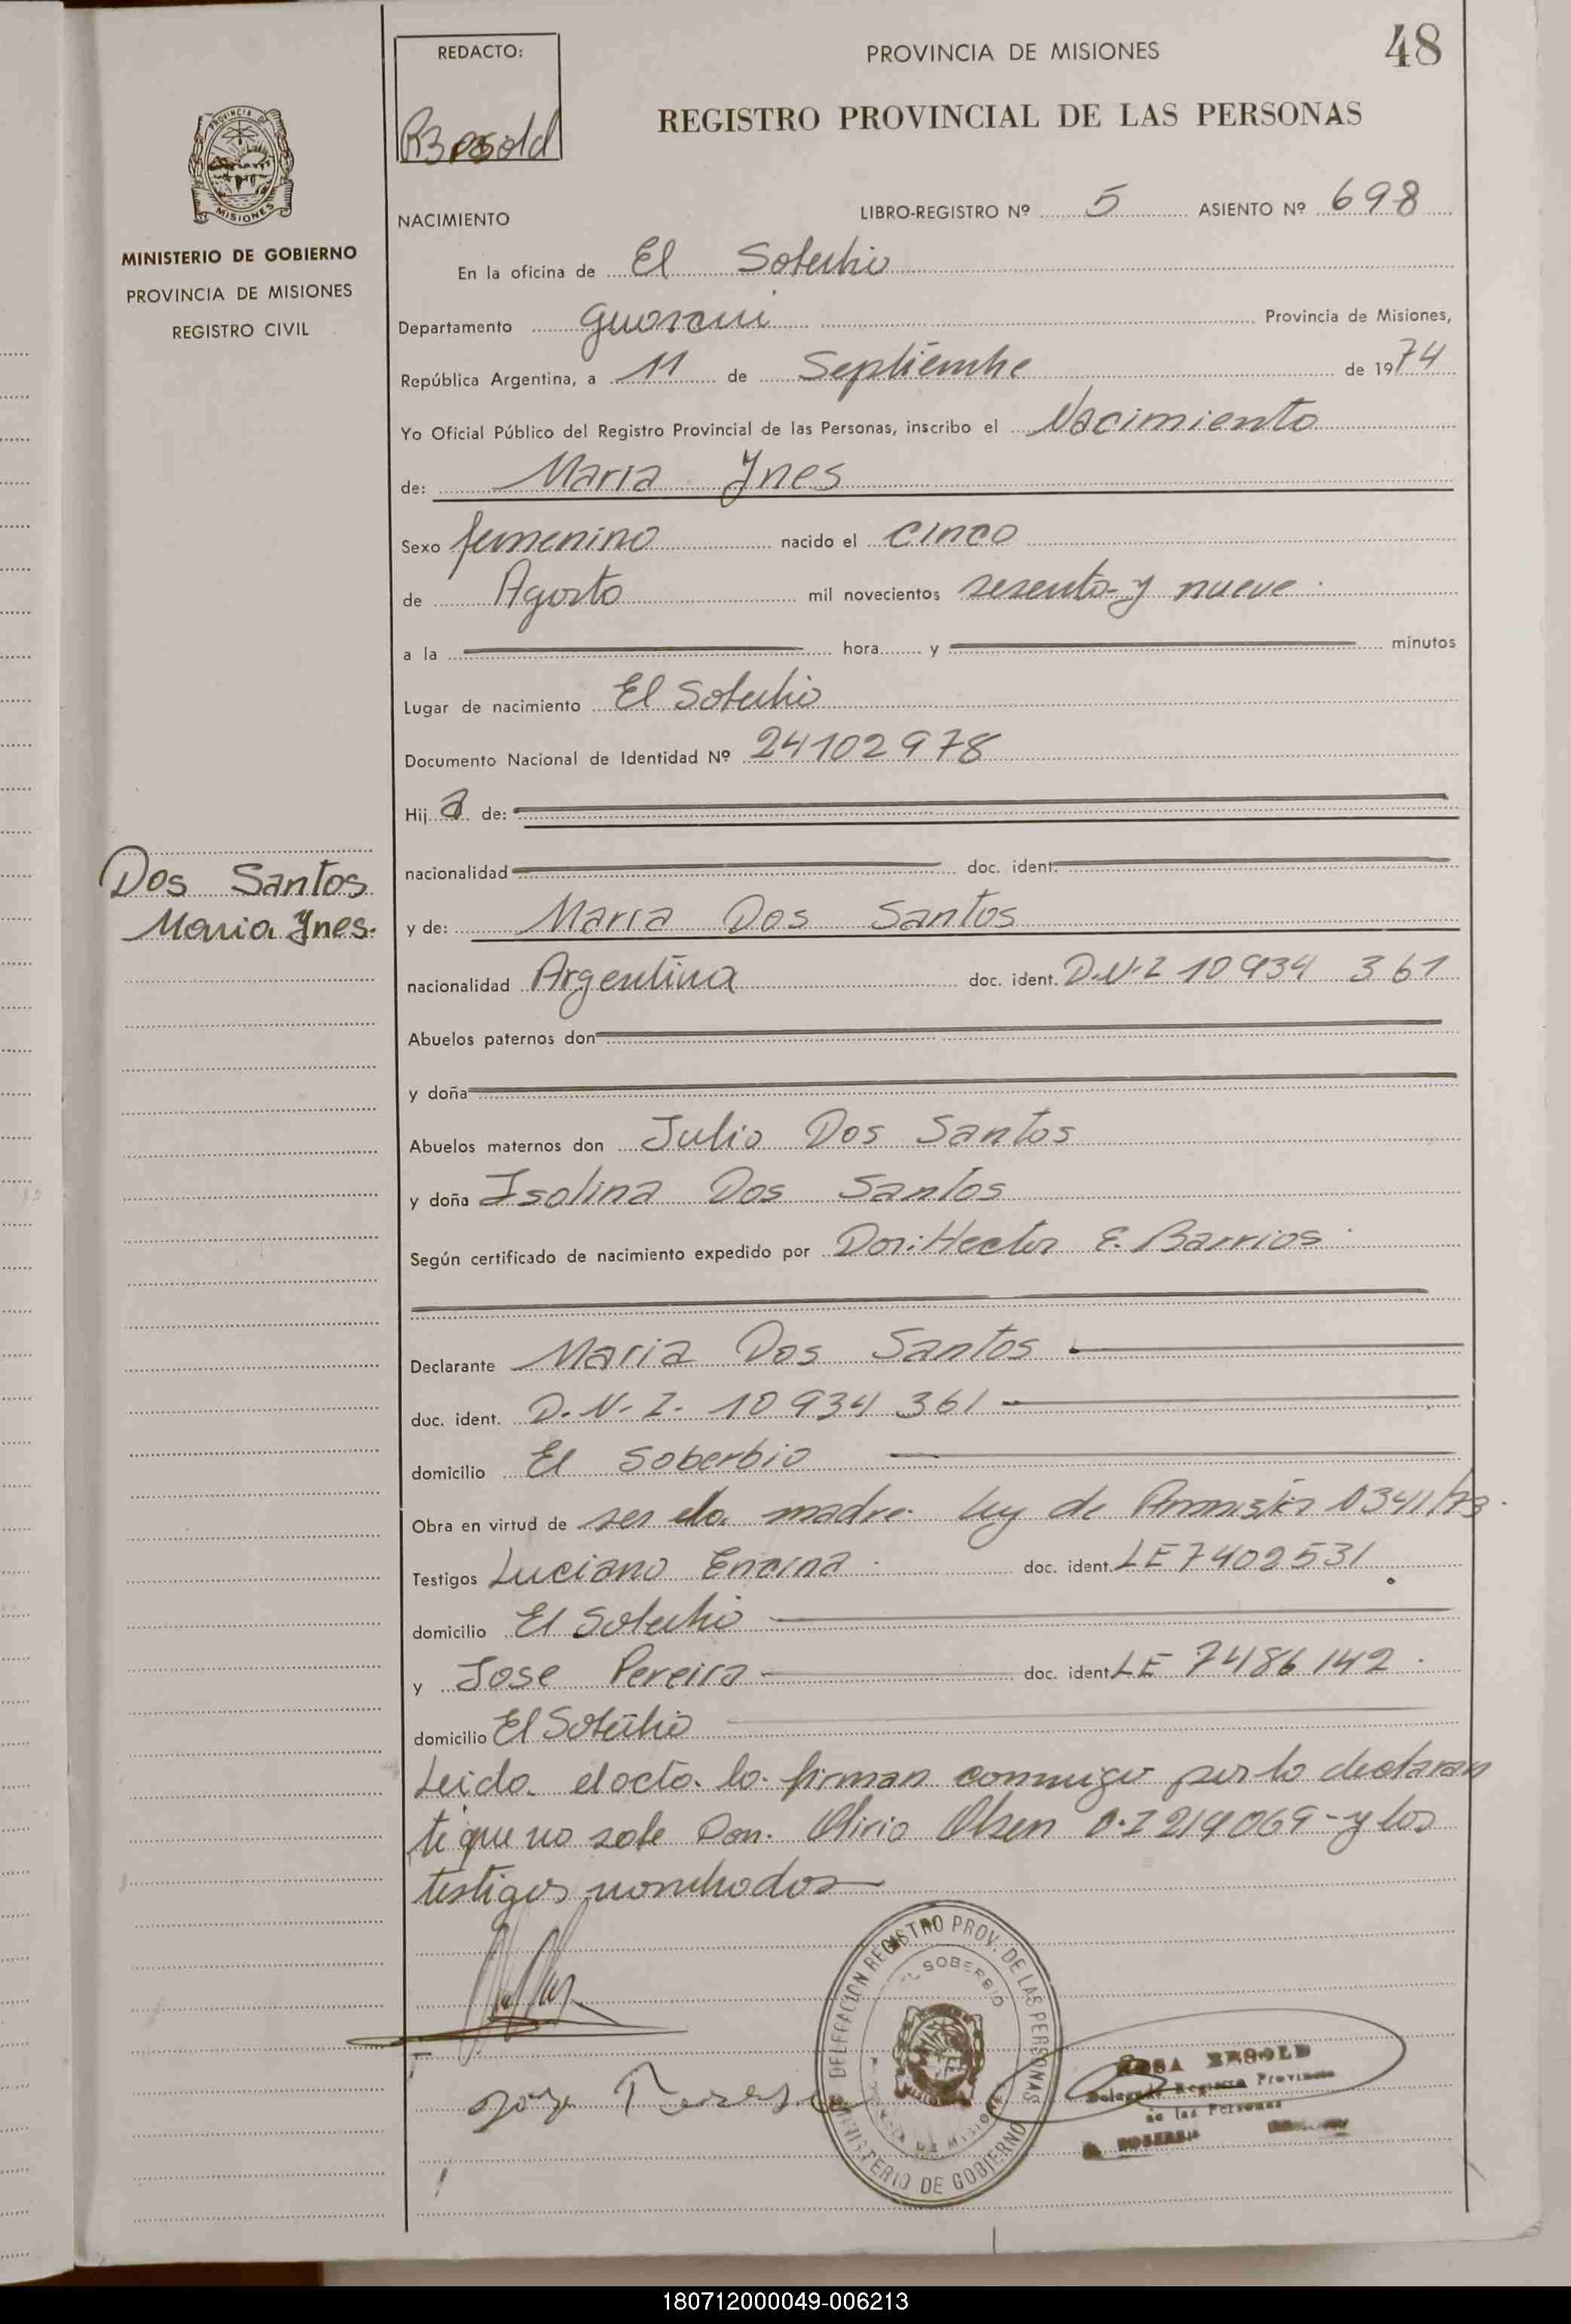 REDACTO:
PROVINCIA DE MISIONES
48
REGISTRO PROVINCIAL DE LAS PERSONAS
LIBRO-REGISTRO Nº 5 ASIENTO Nº 698
NACIMIENTO
PROVINCIA DE
MISIONES
MINISTERIO DE GOBIERNO
PROVINCIA DE MISIONES
REGISTRO CIVIL
En la oficina de El Soberbio
Departamento Guarani Provincia de Misiones,
República Argentina, a 11 de Septiembre de 1974
Yo Oficial Público del Registro Provincial de las Personas, inscribo el Nacimiento
de: Maria Ynes
Sexo femenino nacido el cinco
de Agosto mil novecientos sesenta y nueve
a la hora y minutos
Lugar de nacimiento El Soberbio
Documento Nacional de Identidad Nº 24102978
Hij a de:
nacionalidad doc. ident.
Dos Santos
Maria Ynes.
y de: Maria Dos Santos
nacionalidad Argentina doc. ident. D.N.I 10 934 361
Abuelos paternos don
y doña
Abuelos maternos don Julio Dos Santos
y doña Isolina Dos Santos
Según certificado de nacimiento expedido por Hector E. Barrios
Declarante Maria Dos Santos
doc. ident. D.N.I. 10 934 361
domicilio El Soberbio
Obra en virtud de ser la madre ley de
Testigos Luciano Encina doc. ident. LE 7402531
domicilio El Soberbio
y Jose Pereira doc. ident. LE 7486142
domicilio El Soberbio
Leida el acta la firman conmigo por la declaran
te que no sabe Don. Olirio Olsen 219069 - y los
testigos nombrados
DELEGACION REGISTRO PROV. DE LAS PERSONAS
EL SOBERBIO
MINISTERIO DE GOBIERNO
ROSA BESOLD
Registro Provincial
de las Personas
180712000049-006213